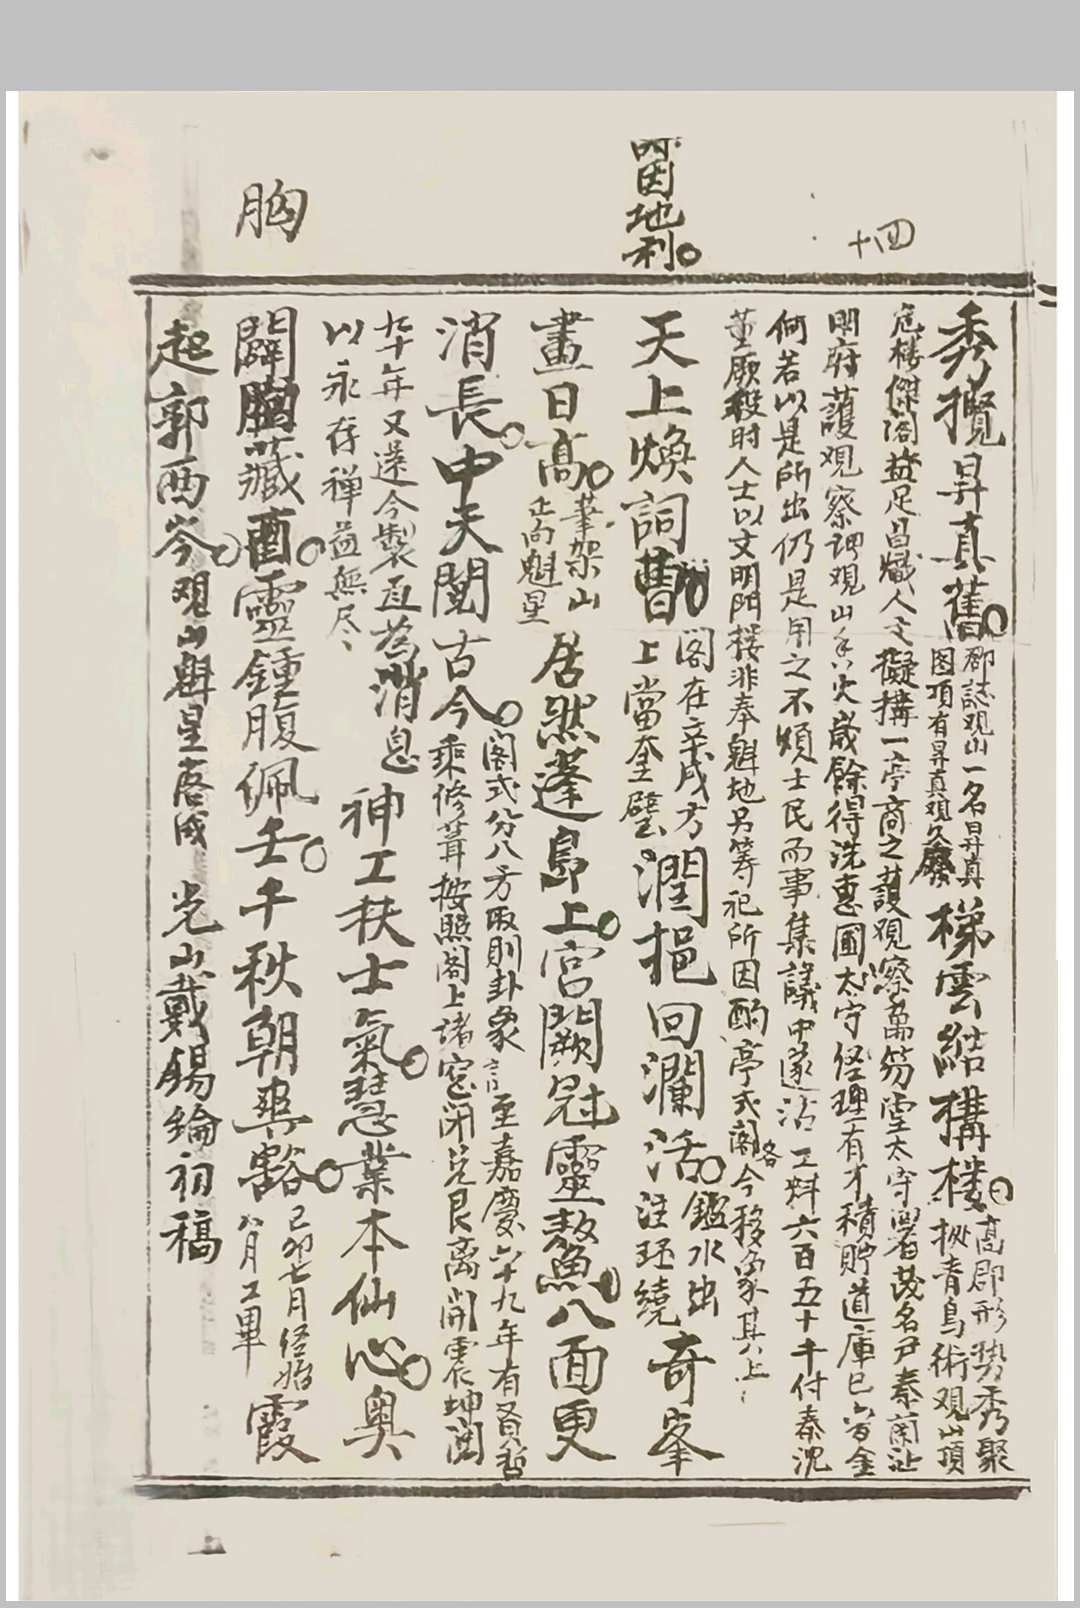 十四
時因地利
胸
秀攬昇真舊郡誌观山一名昇真
图項有昇真观久廢梯雲結構樓高郡形势秀聚
枞青鳥術观山頂
危楼傑阁益足昌熾人文擬搆一亭商之護观察萬笏堂太守署茂名尹秦蘭沚
明府護观察谓观山香火歲餘得洗惠圃太守经理有才積貯道庫已
金
何若以是所出仍是用之不煩士民而事集議中遂沾工料六百五十千付秦沈
董厥役时人士以文明門樓非奉魁地另筹祀所因酌亭式阁各今移象其上
天上煥詞曹阁在辛戌方
上當奎壁潤挹回瀾活鑑水出
注环繞奇峯
畫日高筆架山
正向魁星居然蓬島上宫闕冠靈鰲八面更
消長中天閱古今阁式分八方取則卦象言至嘉慶六十九年有
哲
乘修葺按照阁上諸窓闭兑艮离開震坤阅
九十年又遂今製直為消息
以永存禅益無尽神工扶士氣慧業本仙心奥
闢胸藏酉靈鍾腹佩壬千秋朝爽豁己卯七月经始
八月工畢霞
起郭西岑观山魁星居成 光山戴錫綸初稿